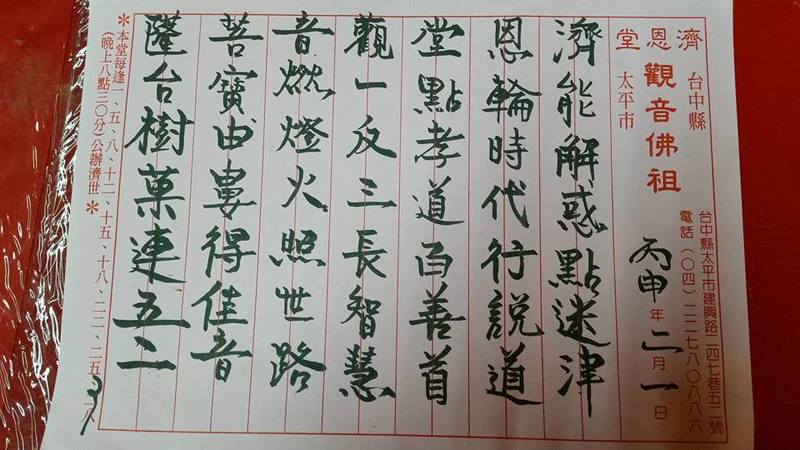 台中縣太平市建興路二四七巷五二號
電話(〇四)二二七八〇八八六
台中縣 太平市
濟恩堂
觀音佛祖
丙申年二月一日
濟能解惑點迷津
恩輪時代行說道
堂點孝道百善首
觀一反三長智慧
音燃燈火照世路
菩寶由婁得佳音
隆台樹菓連五二
*本堂每逢一、五、八、十二、十五、十八、二二、二五、
(晚上八點三〇分)公辦濟世*